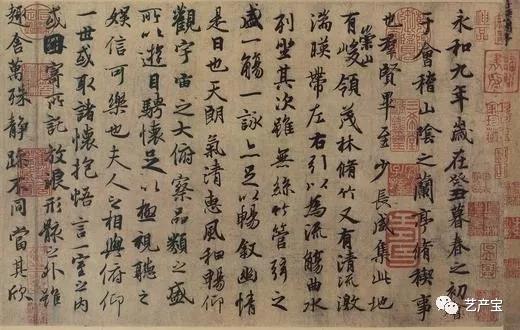 永和九年歲在癸丑暮春之初
于會稽山陰之蘭亭脩稧事
也羣賢畢至少長咸集此地
有崇山峻領茂林脩竹又有清流激
湍暎帶左右引以為流觴曲水
列坐其次雖無絲竹管弦之
盛一觴一詠亦足以暢敘幽情
是日也天朗氣清惠風和暢仰
觀宇宙之大俯察品類之盛
所以遊目騁懷足以極視聽之
娛信可樂也夫人之相與俯仰
一世或取諸懷抱悟言一室之內
或因寄所託放浪形骸之外雖
趣舍萬殊靜躁不同當其欣
艺产宝